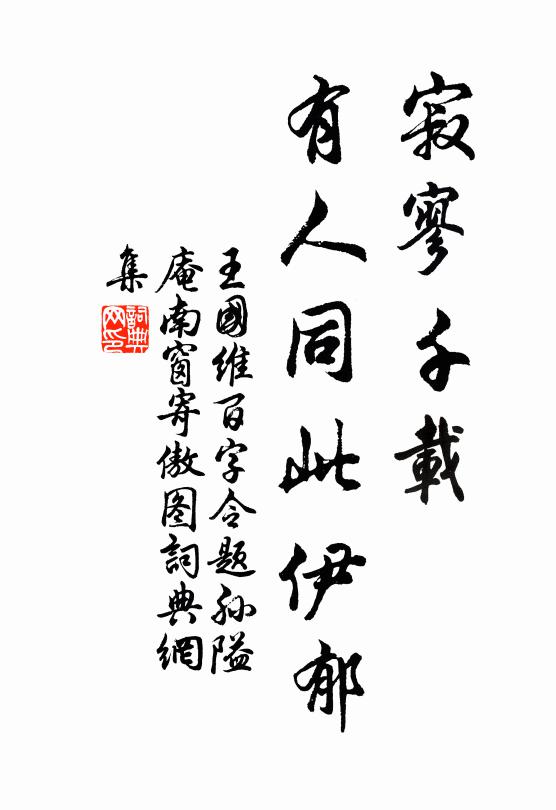 寂寥千載
有人同此伊郁
王國維百字令題孙隘
庵南窗寄傲图詞典網
集
詞典网印